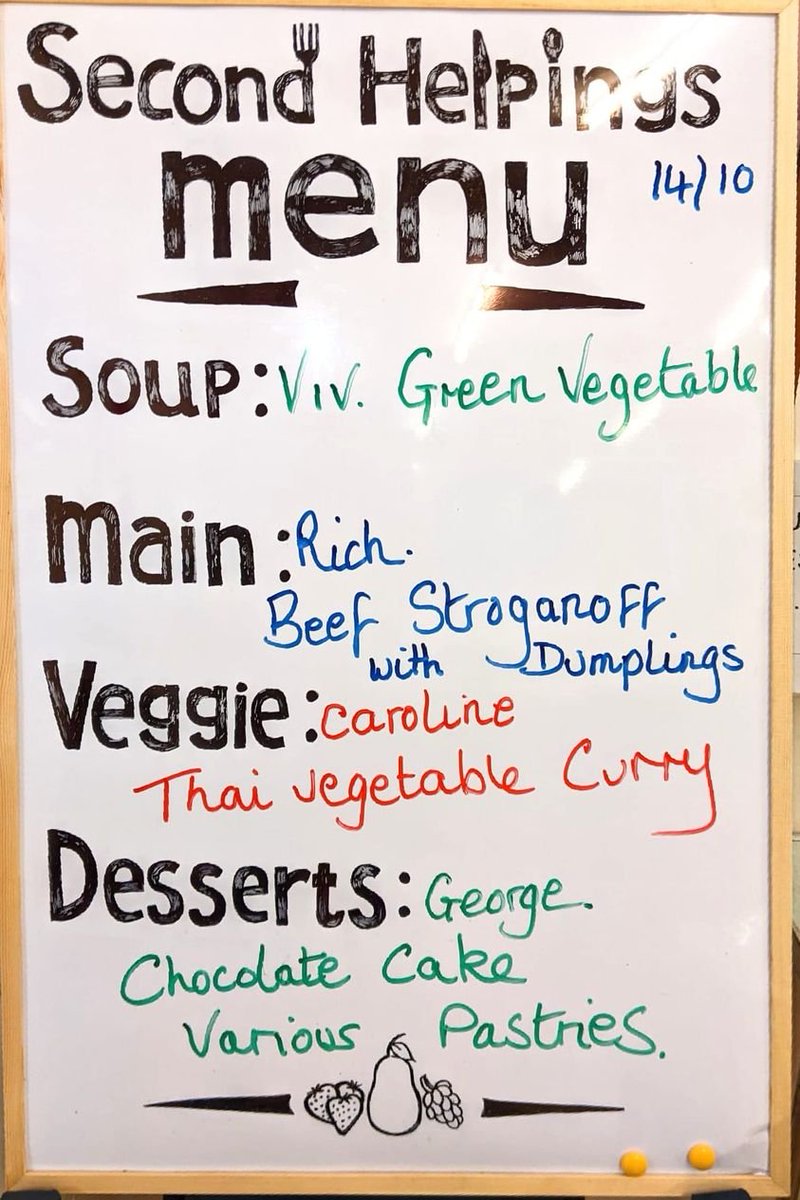 Second Helpings
menu 14/10
Soup: Viv. Green Vegetable
Main: Rich.
Beef Stroganoff
with Dumplings
Veggie: Caroline
Thai Vegetable Curry
Desserts: George.
Chocolate Cake
Various Pastries.